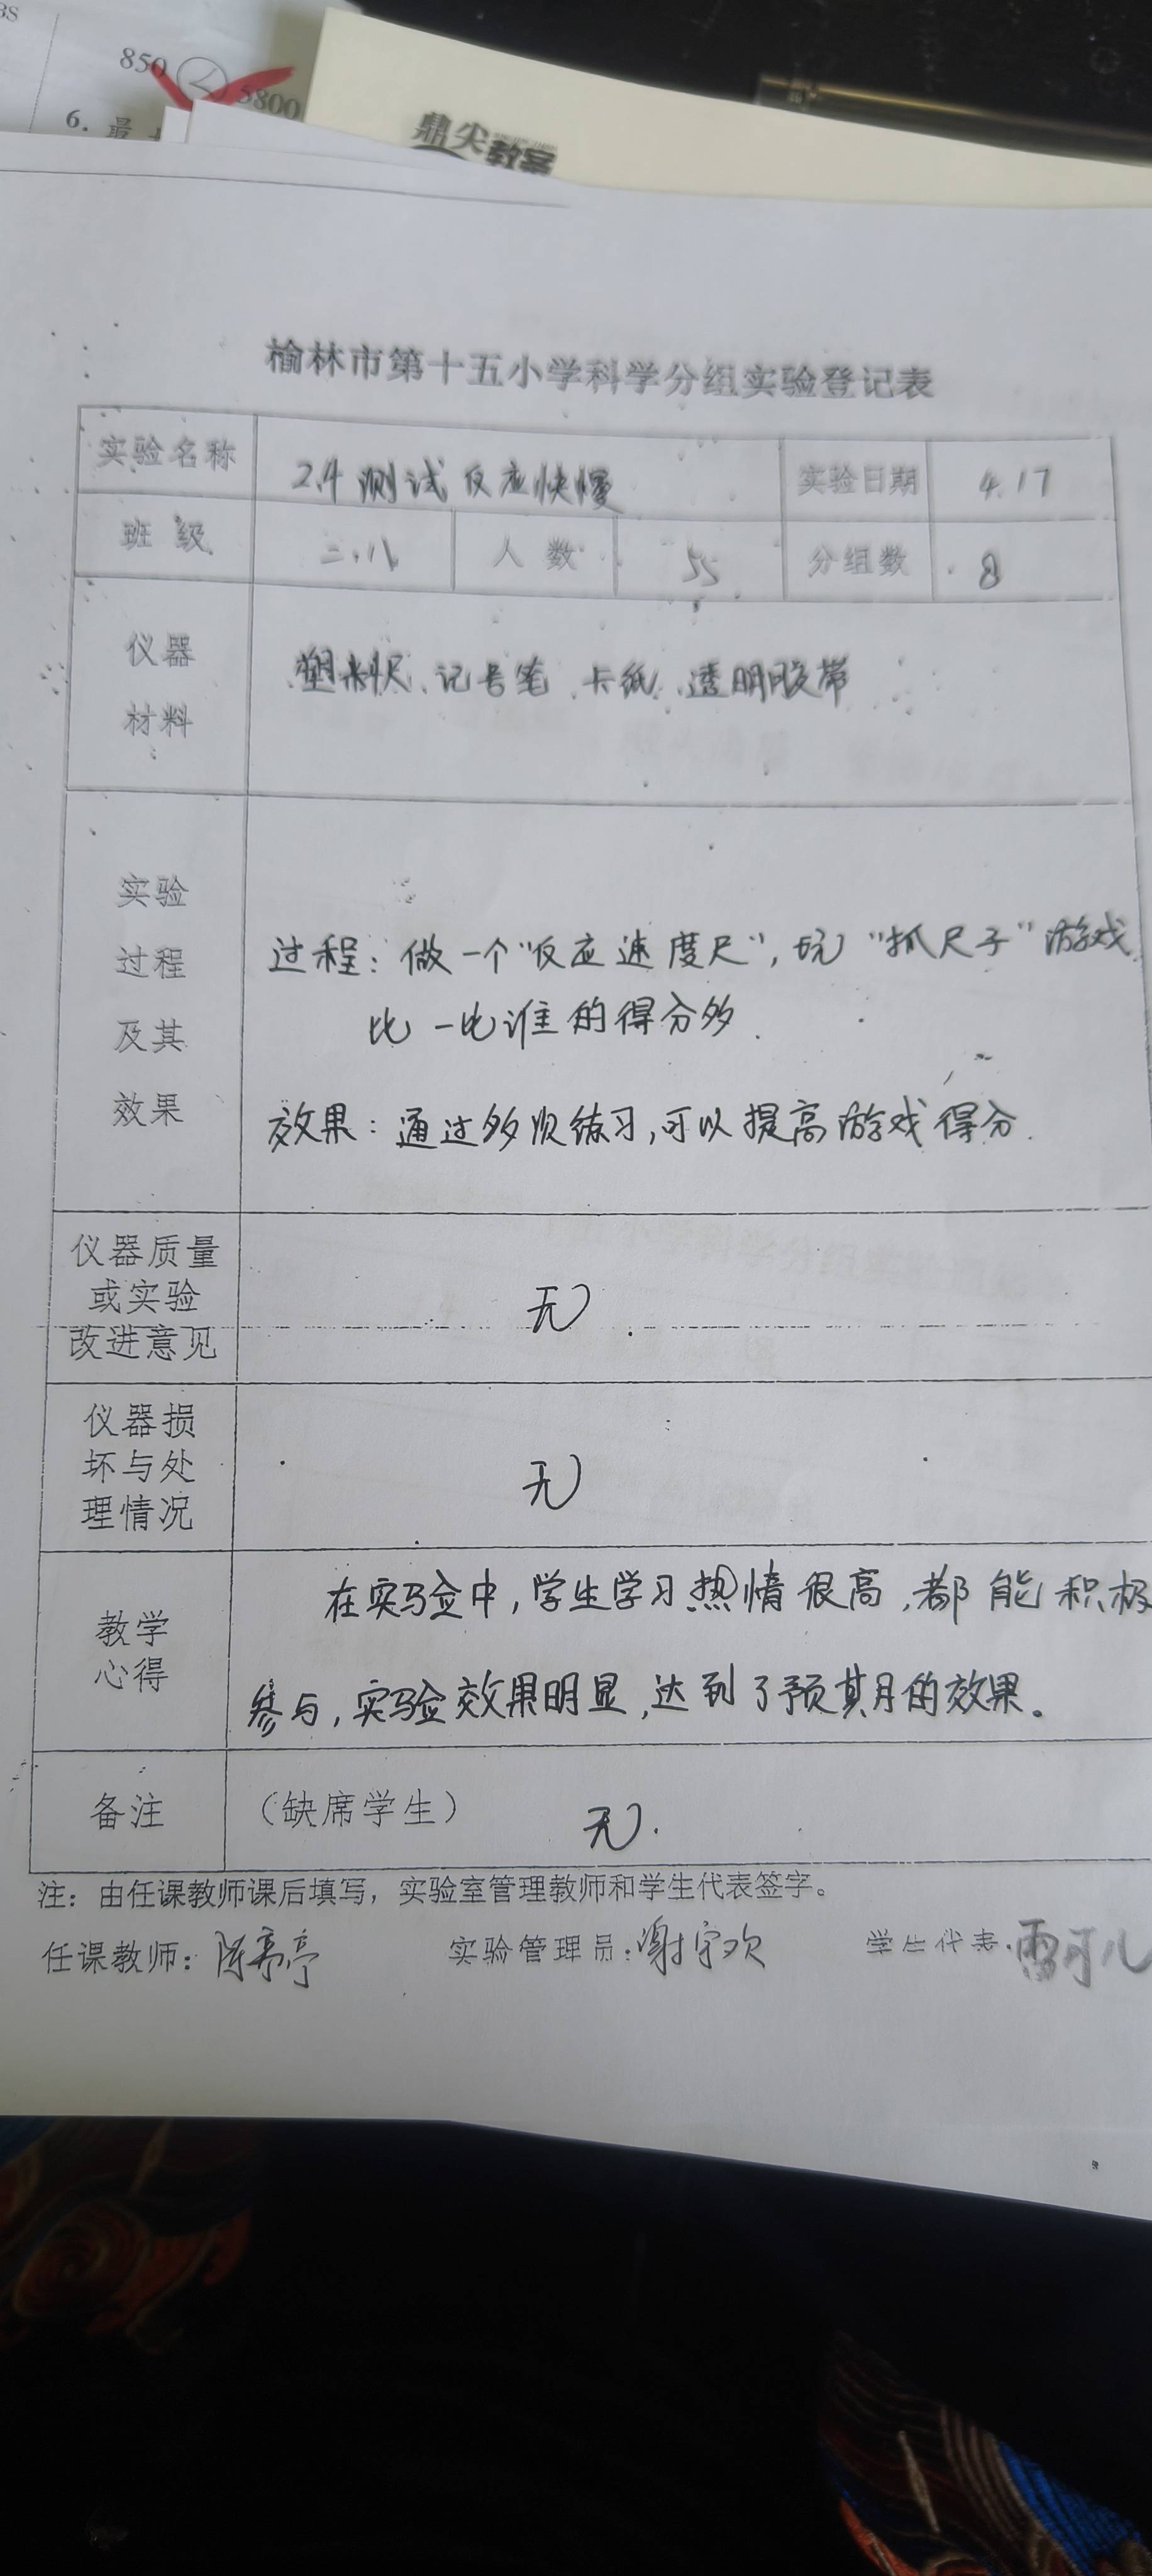 850
5800
6. 最
鼎尖
教案
榆林市第十五小学科学分组实验登记表
实验名称 2.4 测试反应快慢 实验日期 4.17
班 级 人 数 55 分组数 8
仪器
材料
塑料尺、记号笔、卡纸、透明胶带
实验
过程
及其
效果
过程：做一个“反应速度尺”，玩“抓尺子”游戏
比一比谁的得分多.
效果：通过多次练习，可以提高游戏得分.
仪器质量
或实验
改进意见
无
仪器损
坏与处
理情况
无
教学
心得
在实验中，学生学习热情很高，都能积极
参与，实验效果明显，达到了预其月的效果。
备注 （缺席学生） 无.
注：由任课教师课后填写，实验室管理教师和学生代表签字。
任课教师： 实验管理员：谢宇欢 学生代表：雷可儿